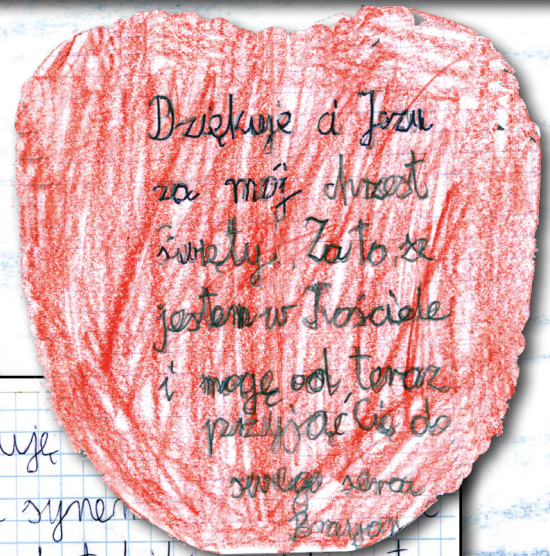 Dziękuje ci Jezu
za mój chrzest
święty. Za to że
jestem w Kościele
i mogę od teraz
przyjąć Cię do
swego serca
Brayan
uję
synem